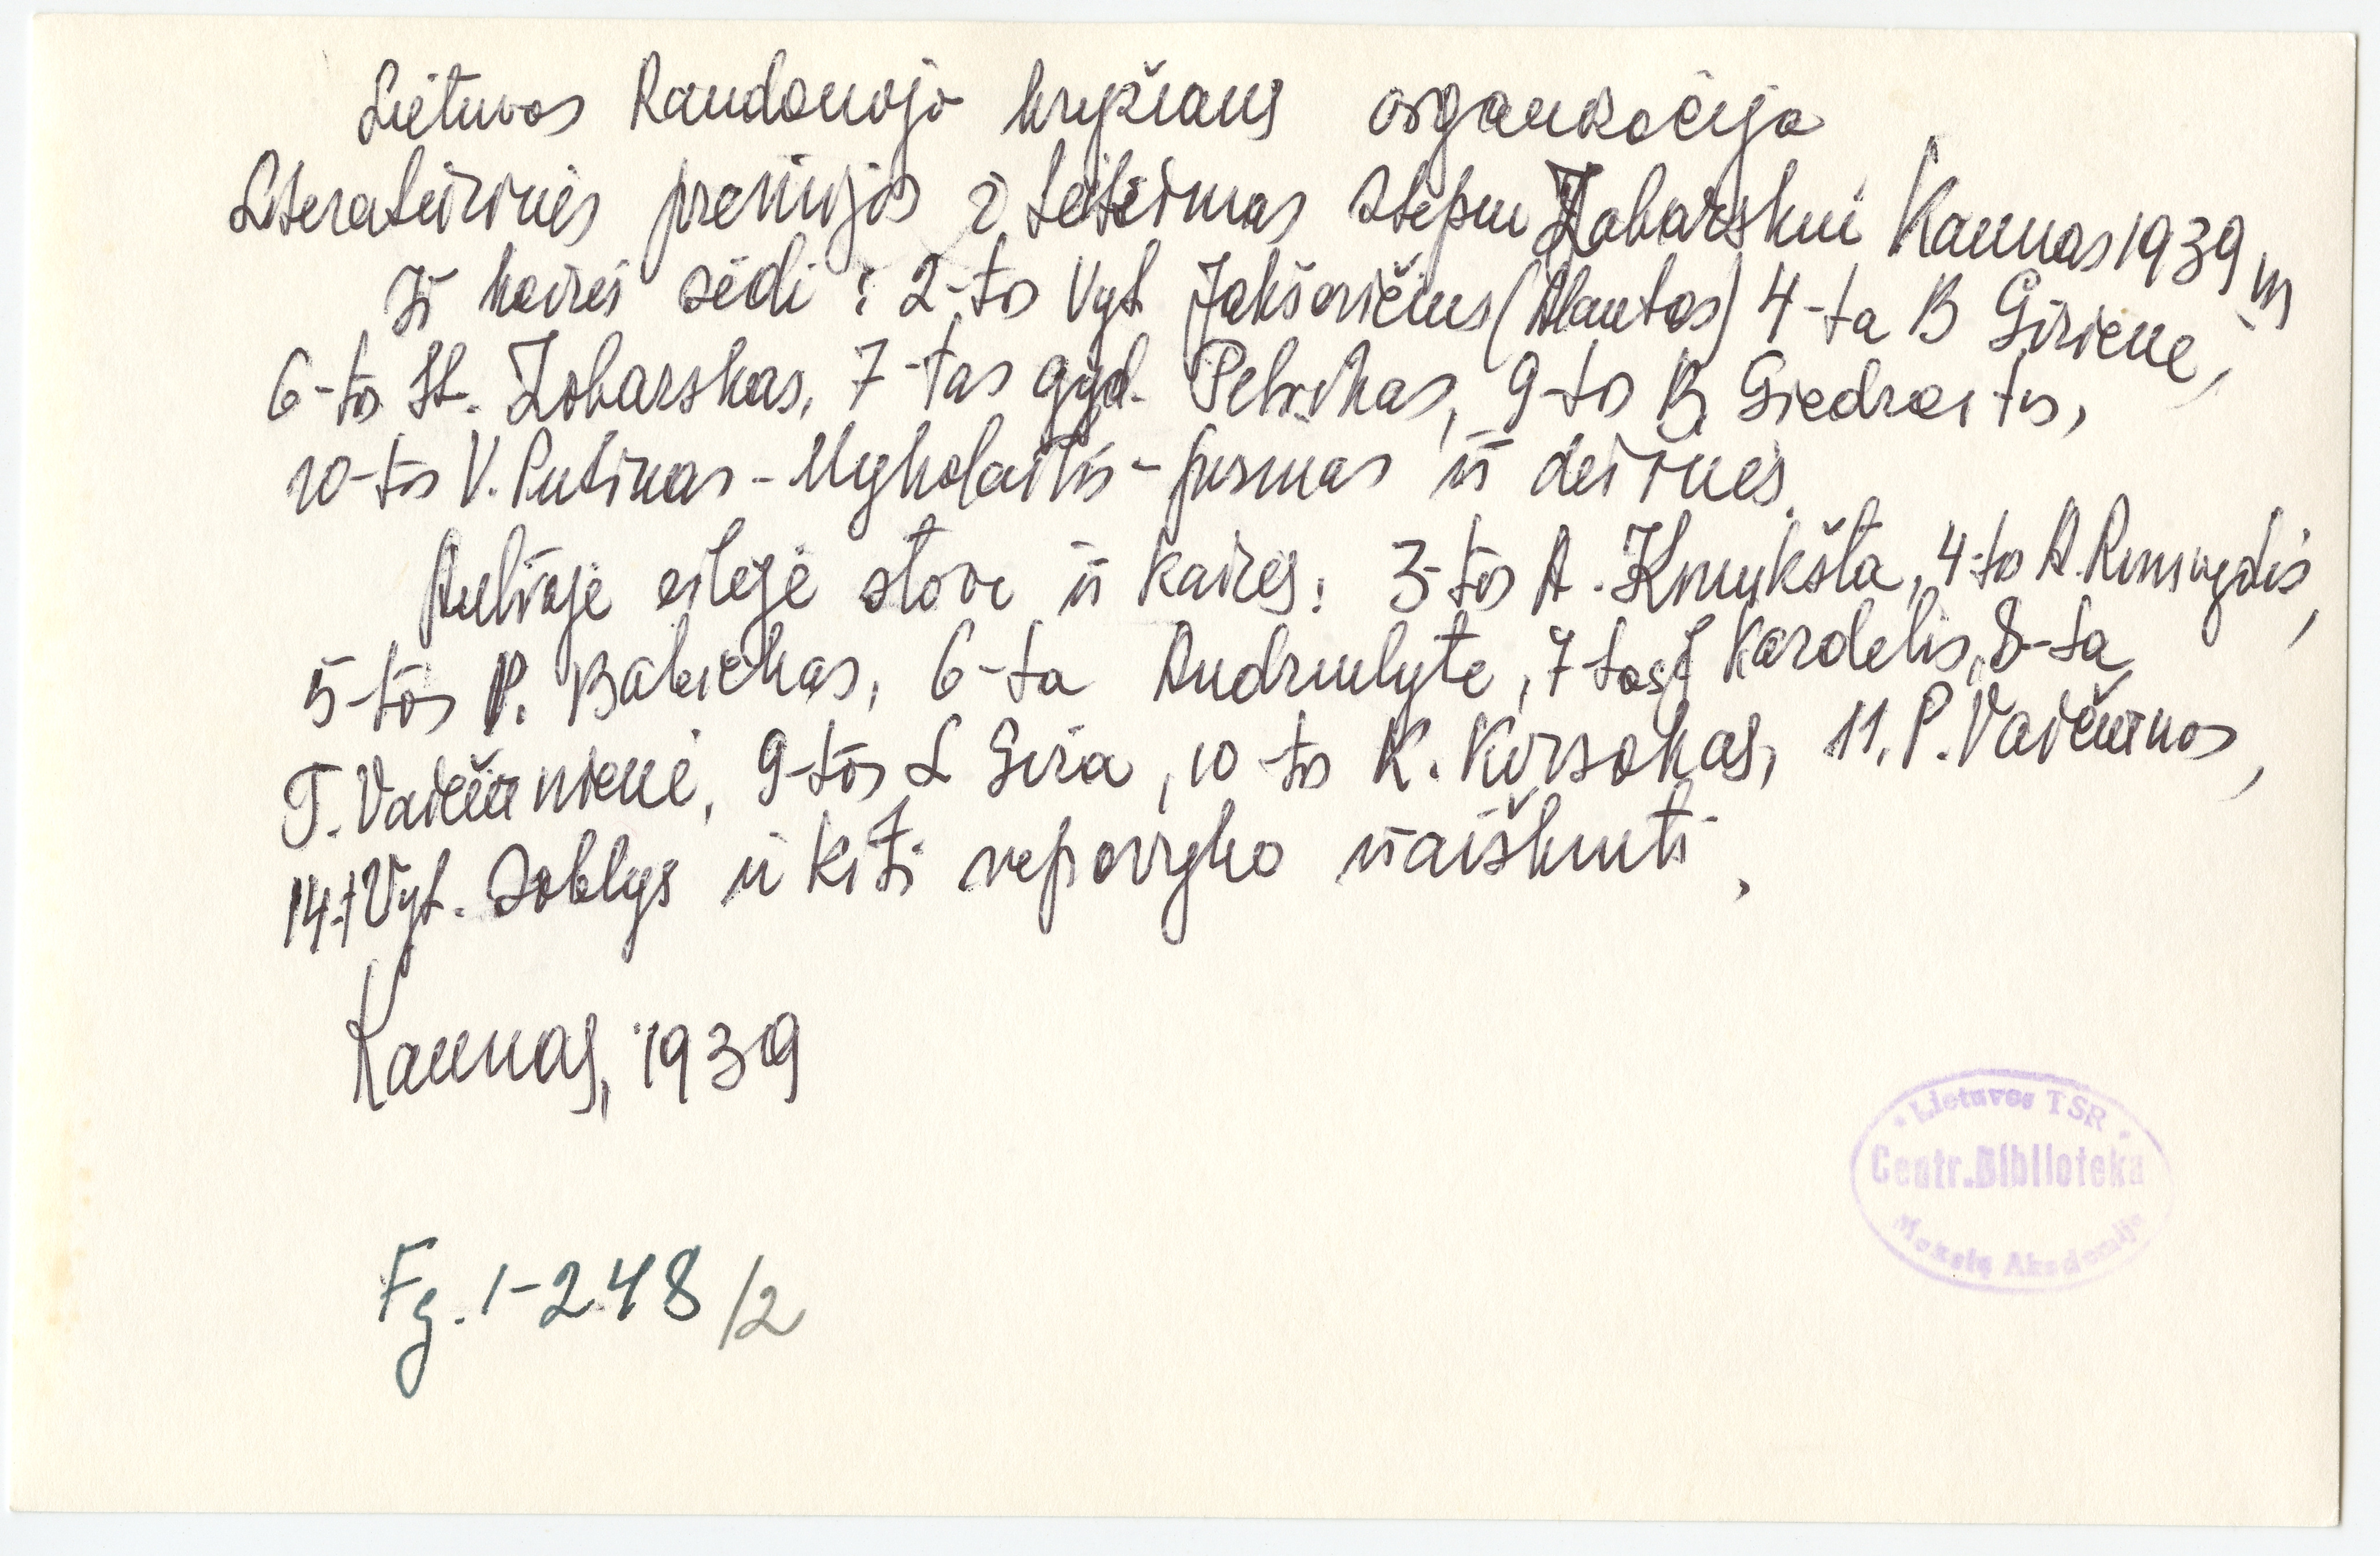 Lietuvos Raudonojo kryžiaus organizacija
Literatūrinės premijos įteikimas Stepui Zobarskui Kaunas 1939 m
Iš kairės sėdi: 2-tas Vyt Jakševičius (Alantas) 4-ta B Girienė,
6-tas St. Zobarskas, 7-tas gyd. Petrikas, 9-tas B Giedraitis,
10-tas V. Putinas-Mykolaitis - pirmas iš dešinės.
Antroje eilėje stovi iš kairės: 3-tas A. Kniukšta, 4-tas A. Rimvydis,
5-tas P. Babickas, 6-ta Andriulytė, 7 tas J Kardelis, 8-ta
T. Vaičiūnienė, 9-tas L Gira, 10-tas K. Korsakas, 11. P. Vaičiūnas,
14-t Vyt. Soblys ir kiti nepavyko išaiškinti.
Kaunas, 1939
Fg. 1-248/2
Lietuvos TSR
Centr. Biblioteka
Mokslų Akademija